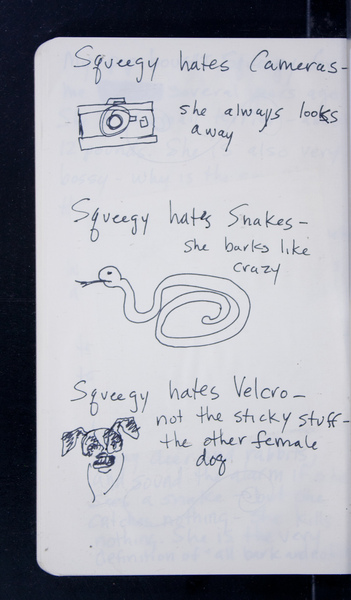 Squeegy hates Cameras -
she always looks
away
Squeegy hates Snakes -
she barks like
crazy
Squeegy hates Velcro -
not the sticky stuff -
the other female
dog